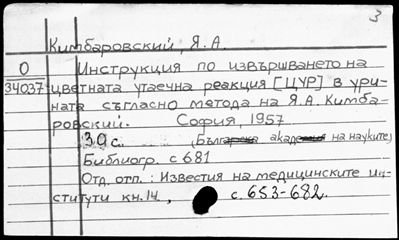 3
Кимбаровский, Я.А.
О
34037
Инструкция по извършването на
цветната утаечна реакция [ЦУР] в ури-
ната съгласно метода на Я.А. Кимба-
ровский. София, 1957
30 с. (Българска академия на науките)
Библиогр. с 681
Отд. отп.: Известия на медицинските ин-
ститути кн.14, с. 653-682.